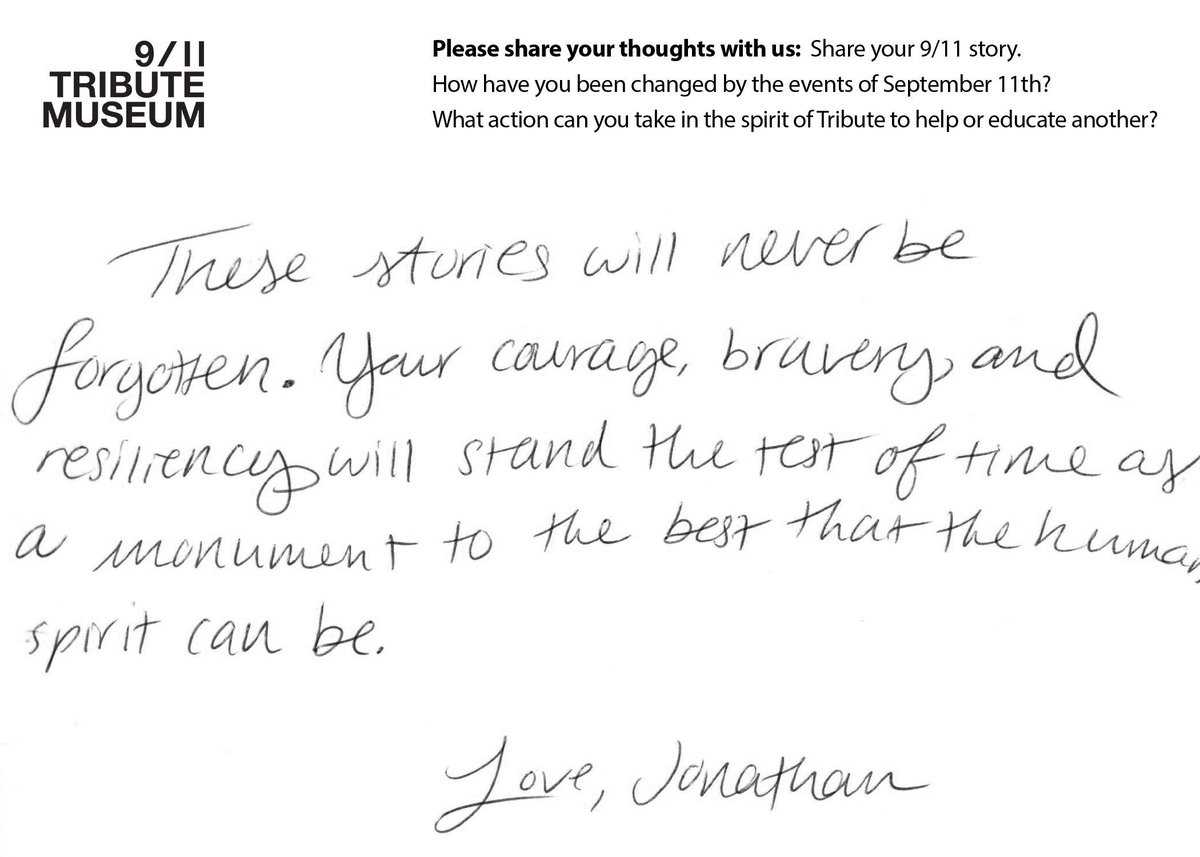 9/11
TRIBUTE
MUSEUM
Please share your thoughts with us: Share your 9/11 story.
How have you been changed by the events of September 11th?
What action can you take in the spirit of Tribute to help or educate another?
These stories will never be
forgotten. Your courage, bravery, and
resiliency will stand the test of time as
a monument to the best that the human
spirit can be.
Love, Jonathan